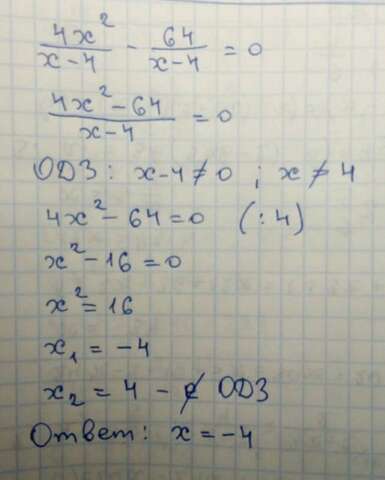 4x²/(x-4) - 64/(x-4) = 0
(4x² - 64)/(x-4) = 0
ОДЗ: x-4 ≠ 0 ; x ≠ 4
4x² - 64 = 0 (:4)
x² - 16 = 0
x² = 16
x₁ = -4
x₂ = 4 - ∉ ОДЗ
Ответ: x = -4